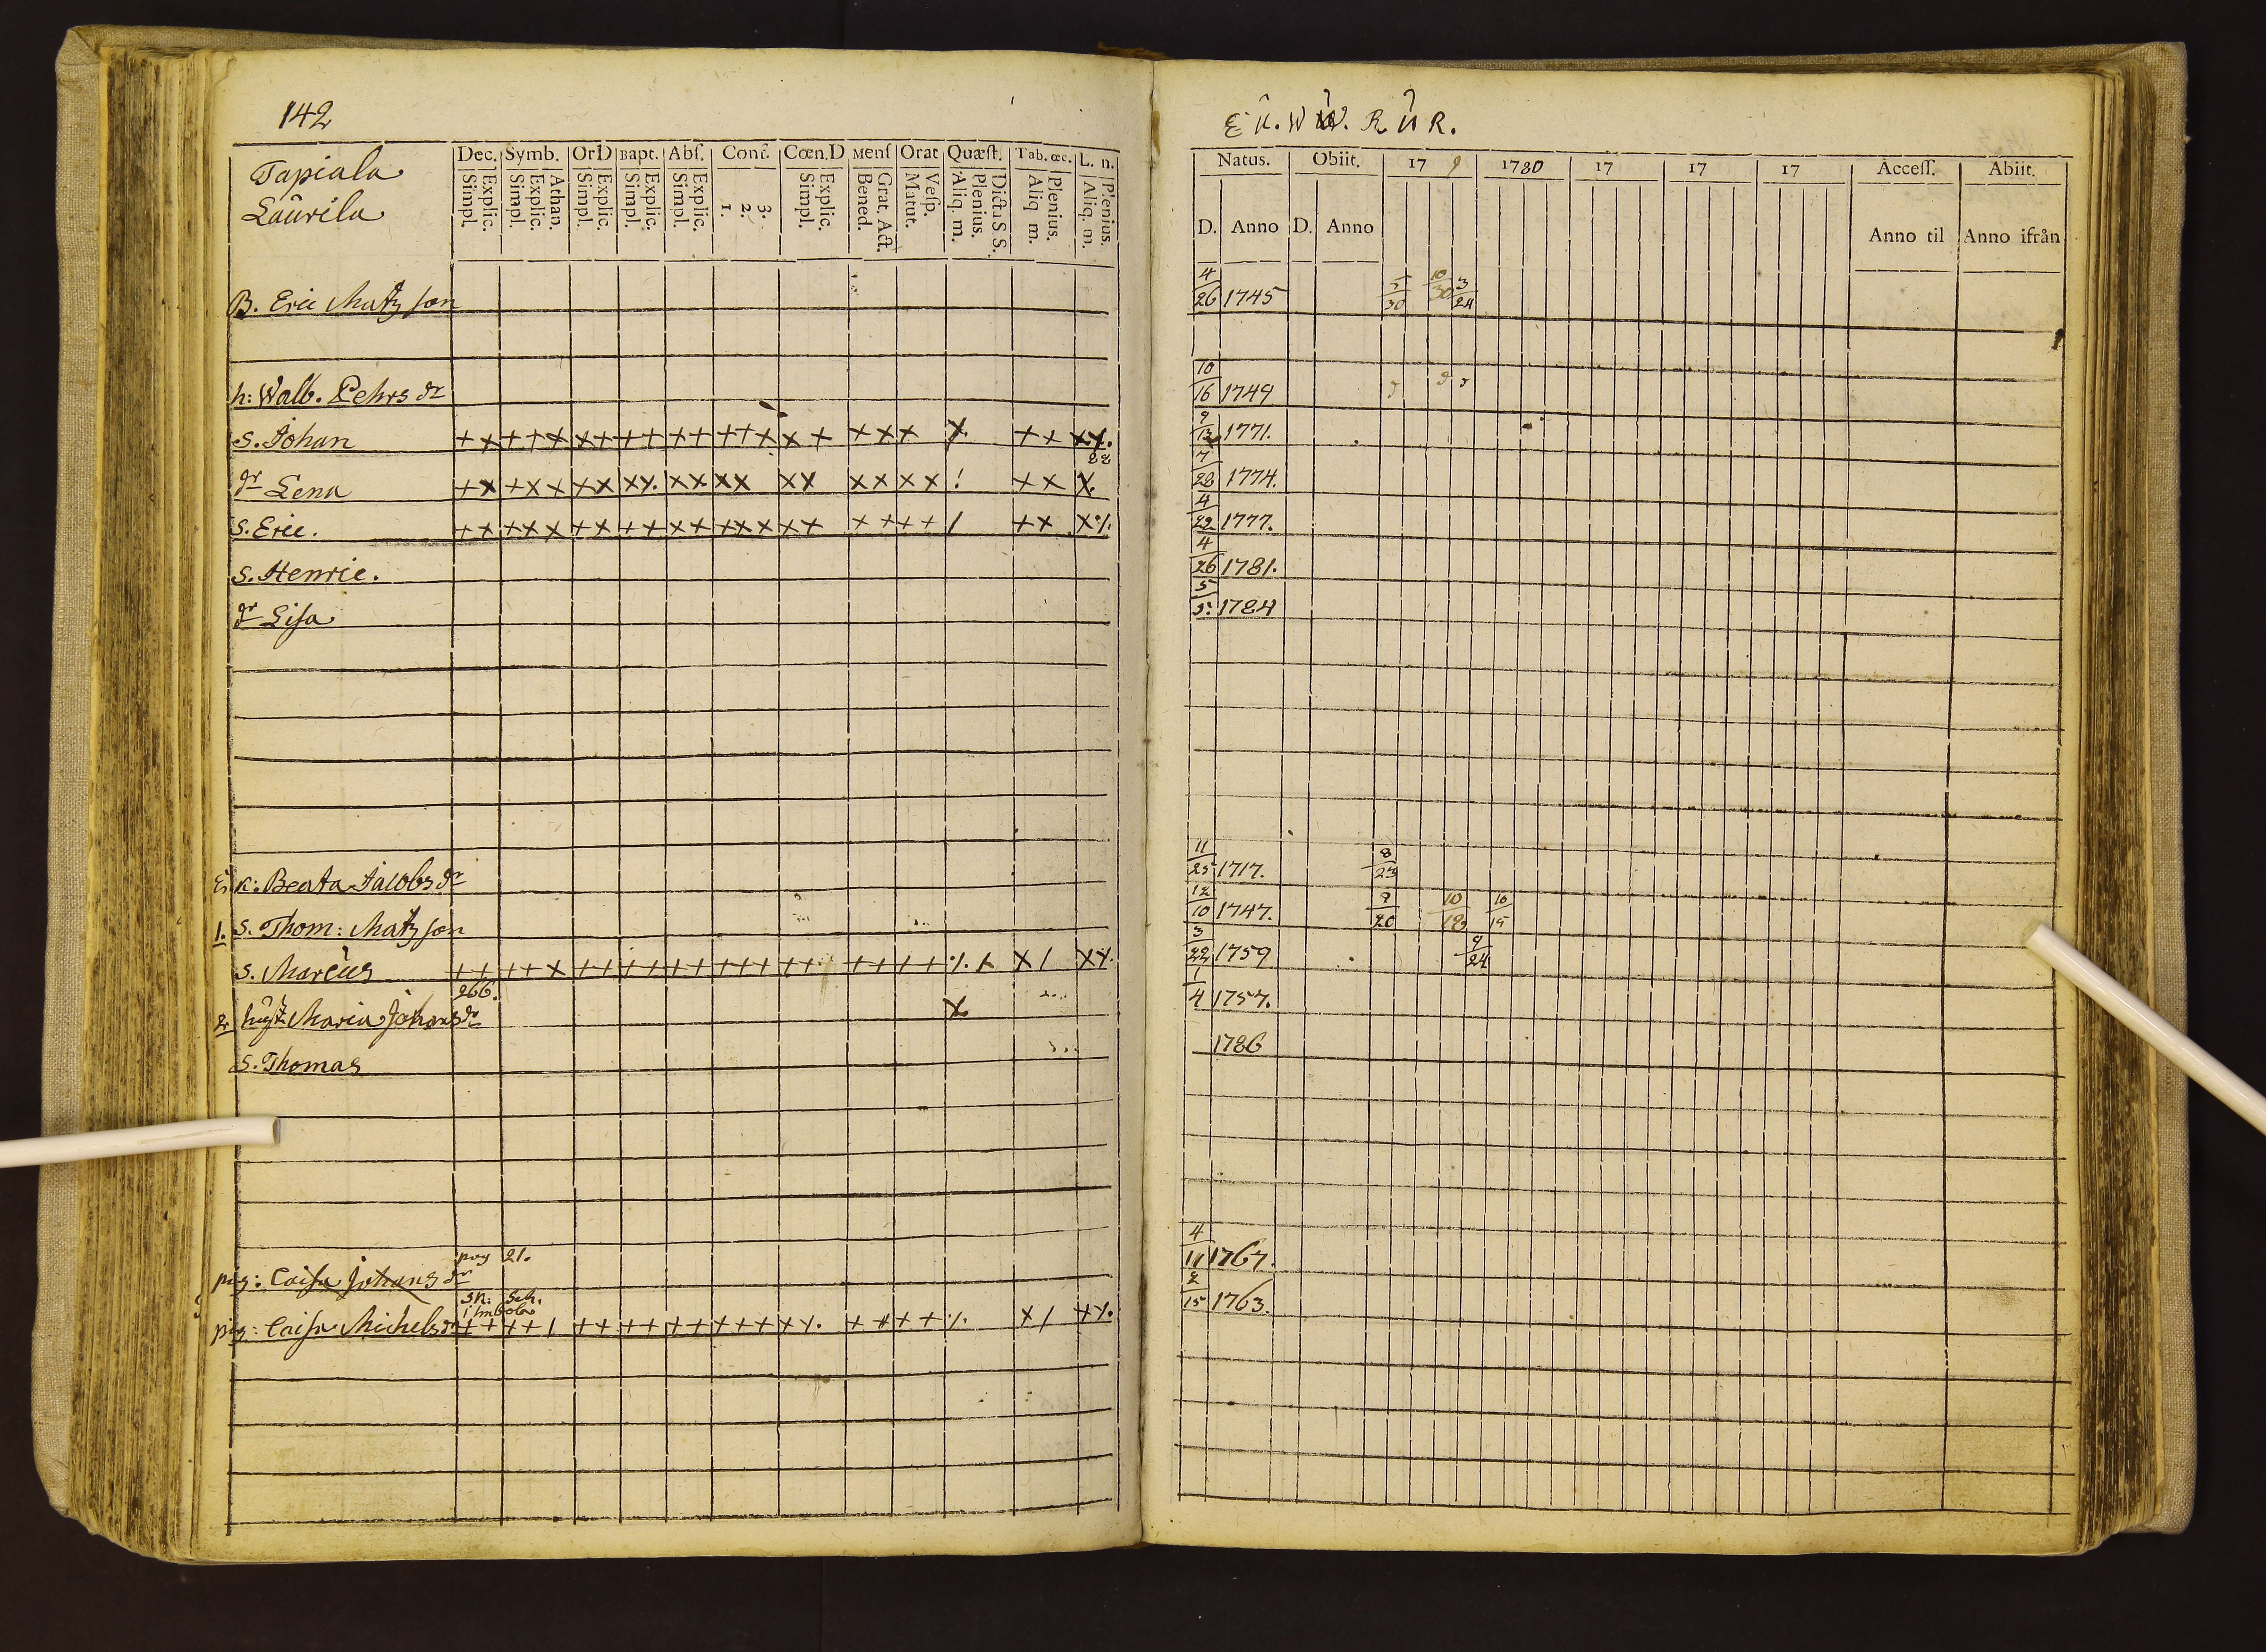 142
Tapiala
Laurila
Dec. Symb. OrD Bapt. Abſ. Conf. Cœn.D Menſ Orat Quæſt. Tab. œc. L. n.
Simpl. Explic. Simpl. Explic. Athan. Simpl. Explic. Simpl. Explic. Simpl. Explic. 1. 2. 3. Simpl. Explic. Bened. Grat. Act. Matut. Veſp. Aliq. m. Plenius. Dicta S S. Aliq m. Plenius. Aliq. m. Plenius.
B. Eric Matz son
h: Walb. Pehrs dr
s. Johan ++ +++ ++ ++ ++ +++ ++ +++ X. ++ XX.
88
dr Lena ++ +++ ++ XX. XX XX XX XX XX ! ++ X.
s. Eric. ++ +++ ++ ++ ++ +++ ++ ++ ++ / ++ X%.
s. Henric.
dr Lisa
E. K: Beata Jacobs dr
1. s. Thom: Matz son
s. Marcus ++ +++ ++ ++ ++ +++ ++ ++ ++ %. + X / XX.
266.
2. Maria Johans dr X
s. Thomas
pag 21.
pig: Caisa Johans dr
sn. sch.
i
pig: Caisa Michels dr ++ ++ / ++ ++ ++ +++ XX. ++ ++ %. X / XX.
E K. W W. R K R.
Natus. Obiit. 17 9 1780 17 17 17 Acceſſ. Abiit.
D. Anno D. Anno Anno til Anno ifrån
4/26 1745 5/30 10/30 3/24
10/16 1749
9/13 1771.
7/28 1774.
4/22 1777.
4/26 1781.
5/5. 1784
11/25 1717. 8/23
12/10 1747. 9/20 10/18 10/15
3/22 1759 9/24
1/4 1757.
1786
4/11 1767.
2/15 1763.